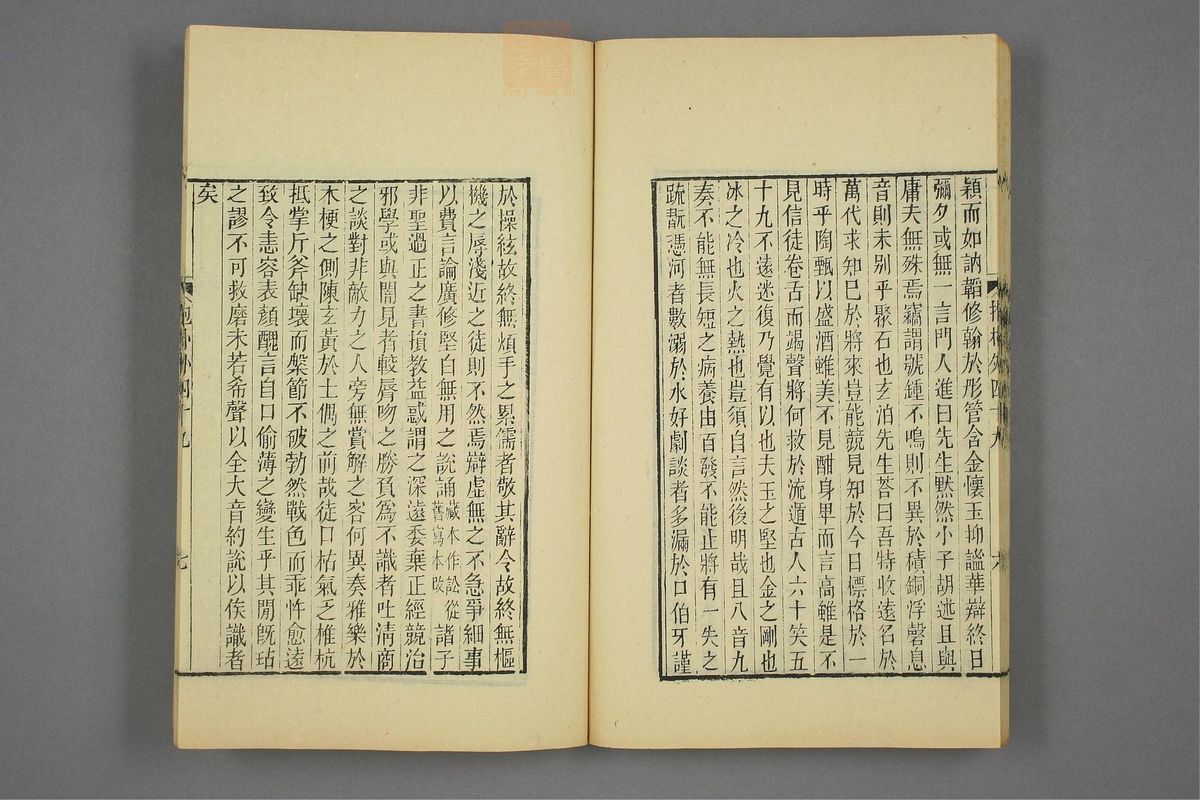 穎而如訥韜修翰於彤管含金懷玉抑謐華辯終日
彌夕或無一言門人進曰先生默然小子胡述且與
庸夫無殊焉竊謂號鍾不鳴則不異於積銅浮磬息
音則未别乎聚石也玄泊先生荅曰吾特收遠名於
萬代求知巳於將來豈能競見知於今日標格於一
時乎陶甄以盛酒雖美不見酣身卑而言高雖是不
見信徒卷舌而竭聲將何救於流遁古人六十笑五
十九不遠迷復乃覺有以也夫玉之堅也金之剛也
冰之冷也火之熱也豈須自言然後明哉且八音九
奏不能無長短之病養由百發不能止將有一失之
疏翫憑河者數溺於水好劇談者多漏於口伯牙謹
於操絃故終無煩手之累儒者敬其辭令故終無樞
機之辱淺近之徒則不然焉辯虛無之不急爭細事
以費言論廣修堅白無用之說誦藏本作訟從舊寫本改諸子
非聖過正之書損教益惑謂之深遠委棄正經競治
邪學或與闇見者較脣吻之勝負爲不識者吐清商
之談對非敵力之人旁無賞解之客何異奏雅樂於
木梗之側陳玄黃於土偶之前哉徒口枯氣乏椎杭
抵掌斤斧缺壞而槃節不破勃然戰色而乖忤愈遠
致令恚容表顏醜言自口偷薄之變生乎其閒旣玷
之謬不可救磨未若希聲以全大音約說以俟識者
矣
抱朴外四十九
七